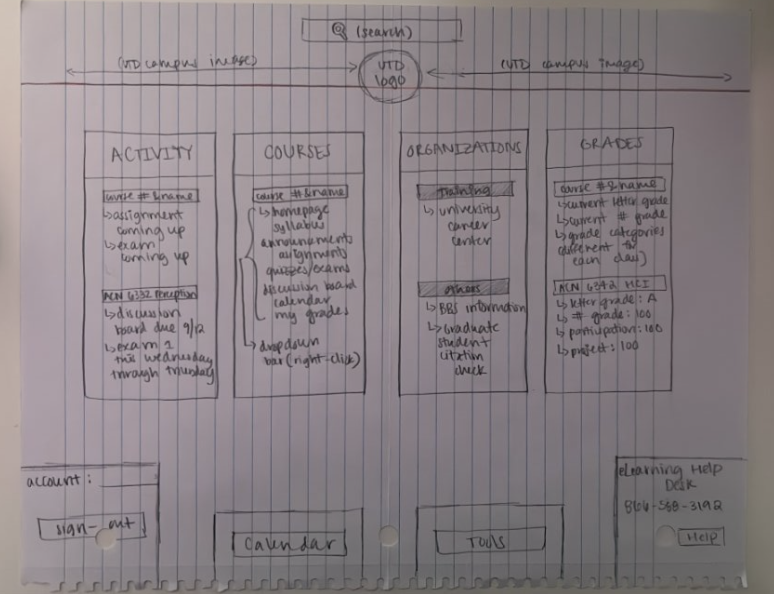 (search)
(UTD campus image)
UTD
logo
(UTD campus image)
ACTIVITY
course # & name
↳assignment
coming up
↳exam
coming up
ACN 6332 Perception
↳discussion
board due 9/12
↳exam 1
this wednesday
through thursday
COURSES
course # & name
↳homepage
syllabus
announcements
assignments
quizzes/exams
discussion board
calendar
my grades
↳dropdown
bar (right-click)
ORGANIZATIONS
training
↳university
career
center
others
↳BBS information
↳Graduate
student
citation
check
GRADES
course # & name
↳current letter grade
↳current # grade
↳grade categories
different for
each class)
ACN 6342 HCI
↳letter grade: A
↳# grade: 100
↳participation: 100
↳project: 100
account:
sign-out
Calendar
TOOLS
eLearning Help
Desk
866-588-3192
Help